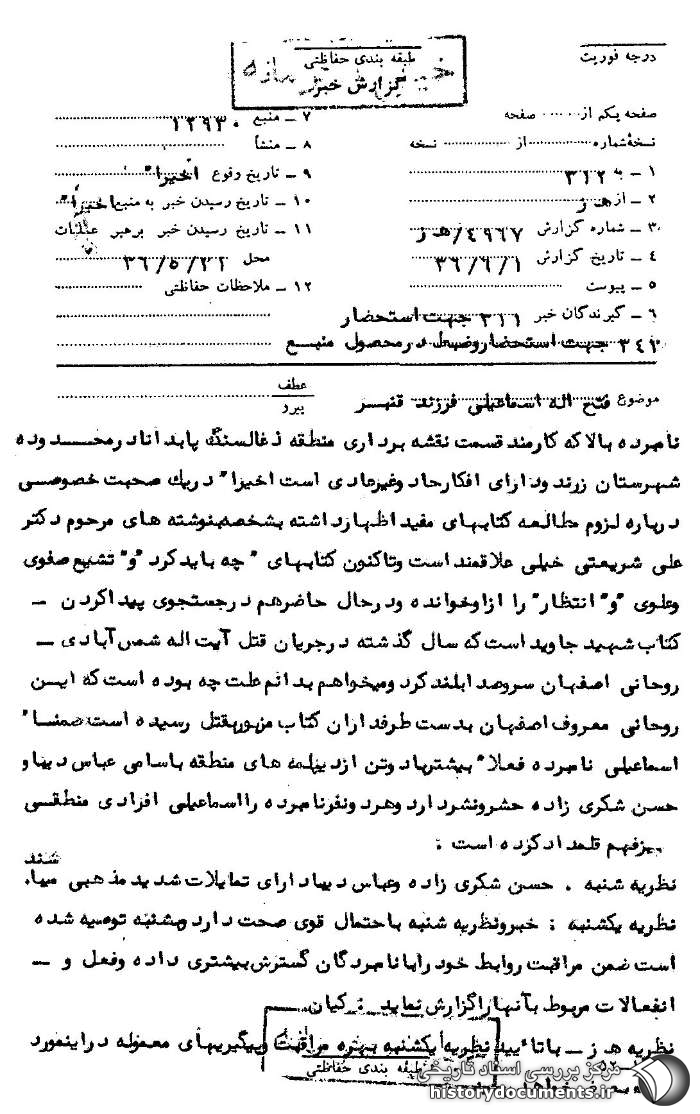 درجه فوریت
طبقه بندی حفاظتی
گزارش خبر
صفحه یکم از ...... صفحه
۷ ـ منبع ۱۲۹۳۰
نسخه شماره .......... از .......... نسخه
۸ ـ منشأ
۱ ـ به ۳۱۲
۹ ـ تاریخ وقوع اخیرا"
۲ ـ از هـ ز
۱۰ ـ تاریخ رسیدن خبر به منبع اخیرا"
۳ ـ شماره گزارش ۴۹۶۷/هـ ز
۱۱ ـ تاریخ رسیدن خبر برهبر عملیات
۴ ـ تاریخ گزارش ۳۶/۶/۱
محل ۳۶/۵/۲۲
۵ ـ پیوست
۱۲ ـ ملاحظات حفاظتی
۶ ـ گیرندگان خبر ۳۱۱ جهت استحضار
۳۴۲ جهت استحضاروضبط درمحصول منبع
عطف
موضوع فتح اله اسماعیلی فرزند قنبر
پیرو
نامبرده بالا که کارمند قسمت نقشه برداری منطقه ذغالسنگ پابدانا در محدوده
شهرستان زرند ودارای افکارحاد وغیرعادی است اخیرا" دریك صحبت خصوصی
درباره لزوم مطالعه کتابهای مفید اظهارداشته بشخصه بنوشته های مرحوم دکتر
علی شریعتی خیلی علاقمند است وتاکنون کتابهای " چه بایدکرد "و" تشیع صفوی
وعلوی "و" انتظار" را ازاوخوانده ودرحال حاضرهم درجستجوی پیداکردن ـ
کتاب شهید جاوید است که سال گذشته درجریان قتل آیت اله شمس آبادی ـ
روحانی اصفهان سروصدابلند کرد ومیخواهم بدانم علت چه بوده است که این
روحانی معروف اصفهان بدست طرفداران کتاب مزبوربقتل رسیده است ضمنا"
اسماعیلی نامبرده فعلا" بیشتربادوتن ازدیپلمه های منطقه باسامی عباس دیبا و
حسن شکری زاده حشرونشردارد وهردونفرنامبرده رااسماعیلی افرادی منطقی
چیزفهم قلمداد کرده است .
نظریه شنبه . حسن شکری زاده وعباس دیبا دارای تمایلات شدید مذهبی میباشند
نظریه یکشنبه : خبرونظریه شنبه باحتمال قوی صحت دارد وبشنبه توصیه شده
است ضمن مراقبت روابط خود راباناممبردگان گسترش بیشتری داده وفعل و ـ
انفعالات مربوط بآنهاراگزارش نماید . کیان
نظریه هـ ز ـ باتأیید نظریه یکشنبه بهره مراقبت وپیگیریهای معموله دراینمورد
طبقه بندی حفاظتی
مرکز بررسی اسناد تاریخی
historydocuments.ir